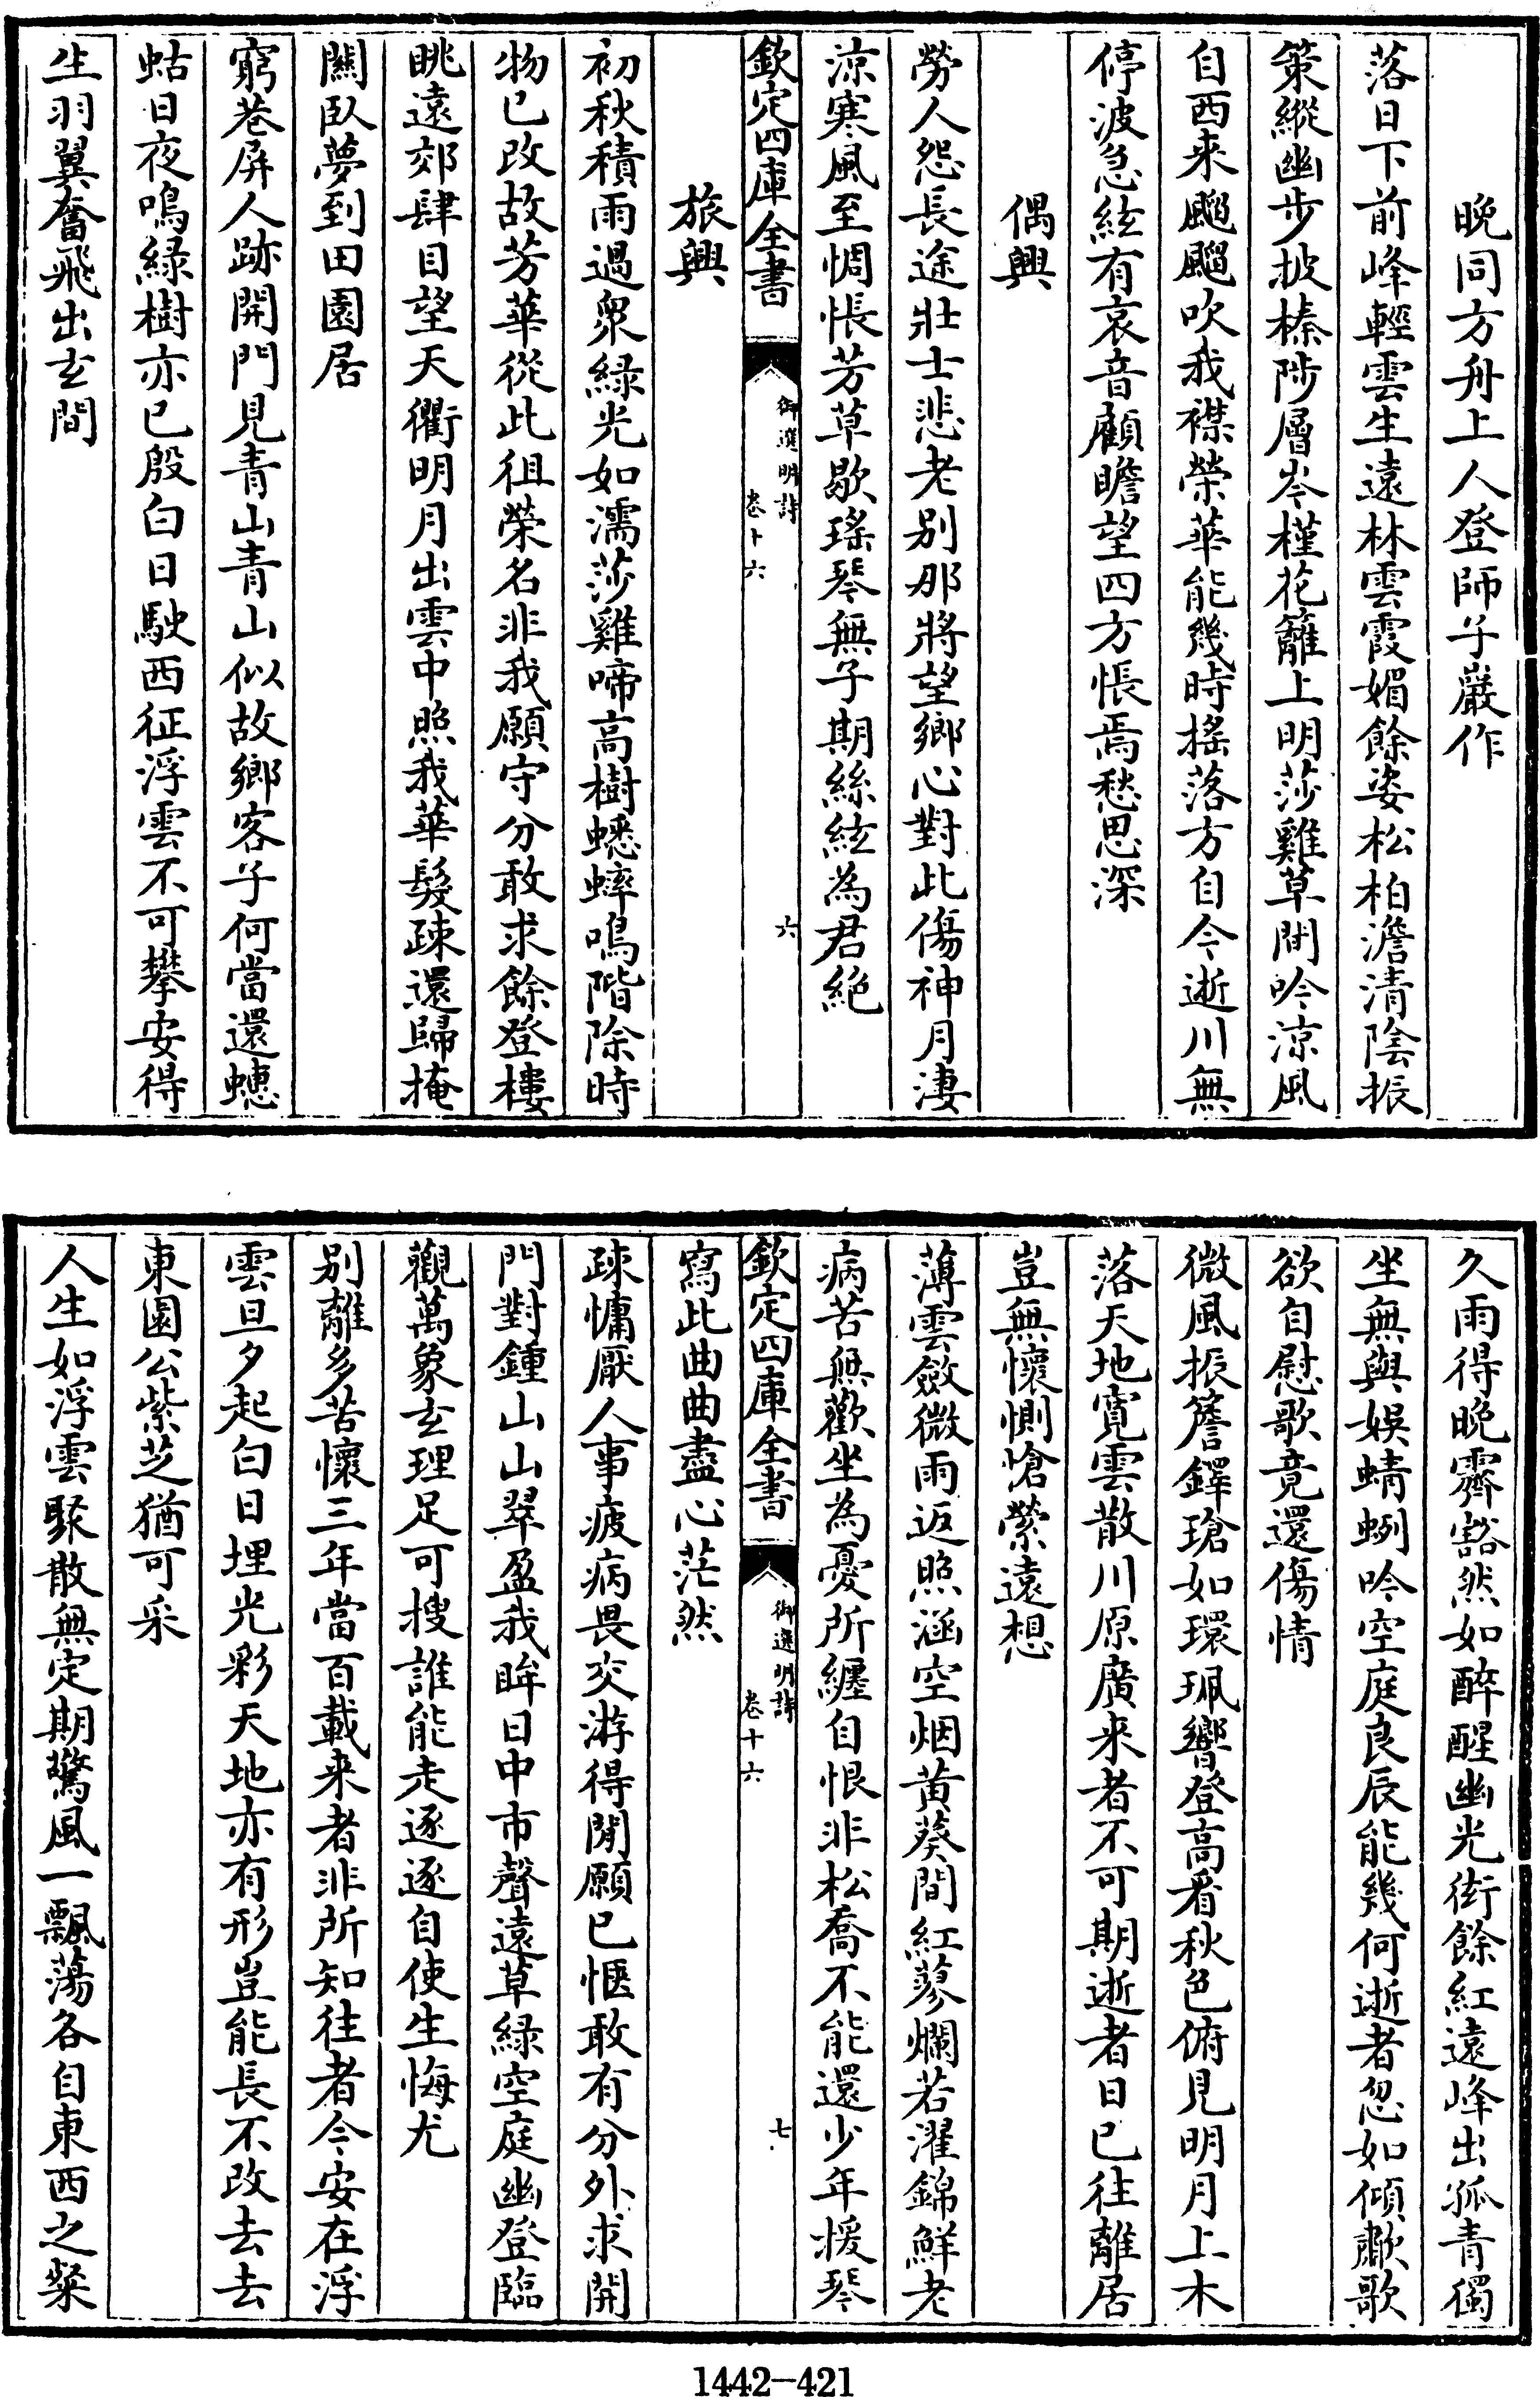 晚同方舟上人登師子巖作
落日下前峰輕雲生遠林雲霞媚餘姿松柏澹清陰振
策縱幽步披榛陟層岑槿花籬上明莎雞草間吟涼風
自西来颼飀吹我襟榮華能幾時揺落方自今逝川無
停波急絃有哀音顧瞻望四方悵焉愁思深
偶興
勞人怨長途壯士悲老别那將望鄉心對此傷神月淒
涼寒風至惆悵芳草歇瑤琴無子期絲絃為君絶
欽定四庫全書
御選明詩
卷十六
六
旅興
初秋積雨過衆緑光如濡莎雞啼高樹蟋蟀鳴階除時
物已改故芳華從此徂榮名非我願守分敢求餘登樓
眺遠郊肆目望天衢明月出雲中照我華髮疎還歸掩
關臥夢到田園居
窮巷屏人跡開門見青山青山似故鄉客子何當還蟪
蛄日夜鳴緑樹亦已殷白日駛西征浮雲不可攀安得
生羽翼奮飛出玄間
久雨得晚霽豁然如醉醒幽光街餘紅遠峰出孤青獨
坐無與娛蜻蛚吟空庭良辰能幾何逝者忽如傾歗歌
欲自慰歌竟還傷情
微風振簷鐸瑲如環珮響登高看秋色俯見明月上木
落天地寛雲散川原廣来者不可期逝者日已往離居
豈無懷惻愴縈遠想
薄雲斂微雨返照涵空烟黄葵間紅蓼爛若濯錦鮮老
病苦無歡坐為憂所纏自恨非松喬不能還少年援琴
欽定四庫全書
御選明詩
卷十六
七
寫此曲曲盡心茫然
疎慵厭人事疲病畏交游得閒願已愜敢有分外求開
門對鍾山山翠盈我眸日中市聲遠草緑空庭幽登臨
觀萬象玄理足可搜誰能走逐逐自使生悔尤
别離多苦懷三年當百載来者非所知往者今安在浮
雲旦夕起白日埋光彩天地亦有形豈能長不改去去
東園公紫芝猶可采
人生如浮雲聚散無定期驚風一飄蕩各自東西之粲
1442-421